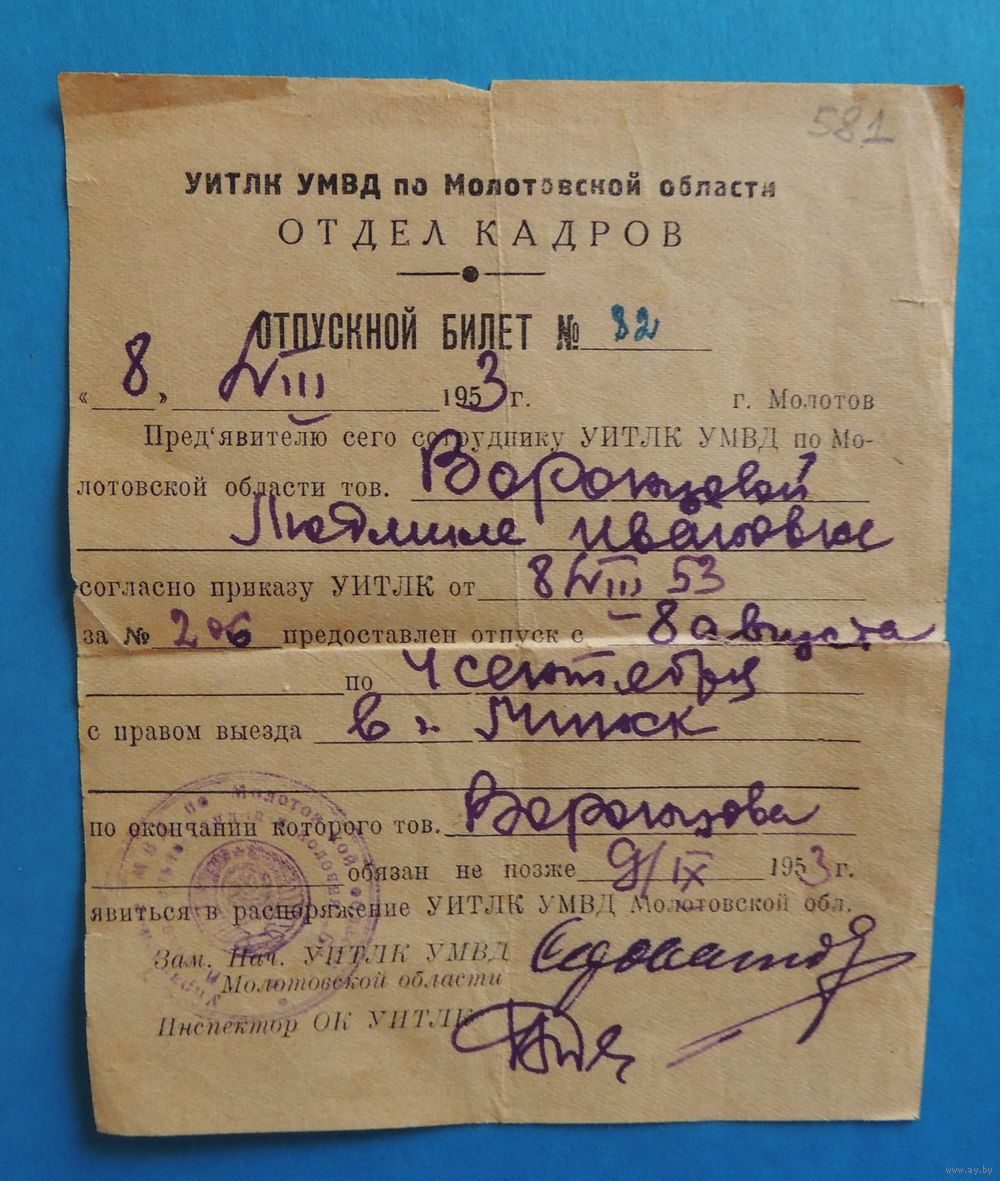 581
УИТЛК УМВД по Молотовской области
ОТДЕЛ КАДРОВ
ОТПУСКНОЙ БИЛЕТ № 82
« 8 » VIII 1953 г. г. Молотов
Пред'явителю сего сотруднику УИТЛК УМВД по Мо-
лотовской области тов. Воронцовой
Людмиле Ивановне
согласно приказу УИТЛК от 8/VIII 53
за № 206 предоставлен отпуск с 8 августа
по сентября
с правом выезда в г. Минск
по окончании которого тов. Воронцова
обязан не позже 9/IX 1953 г.
явиться в распоряжение УИТЛК УМВД Молотовской обл.
Зам. Нач. УИТЛК УМВД
Молотовской области
Инспектор ОК УИТЛК
www.ay.by